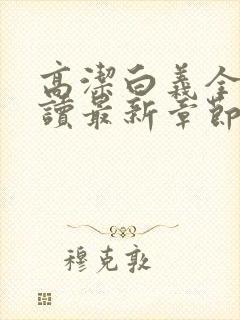 高潔白義全
讀最新章節
穆克敦